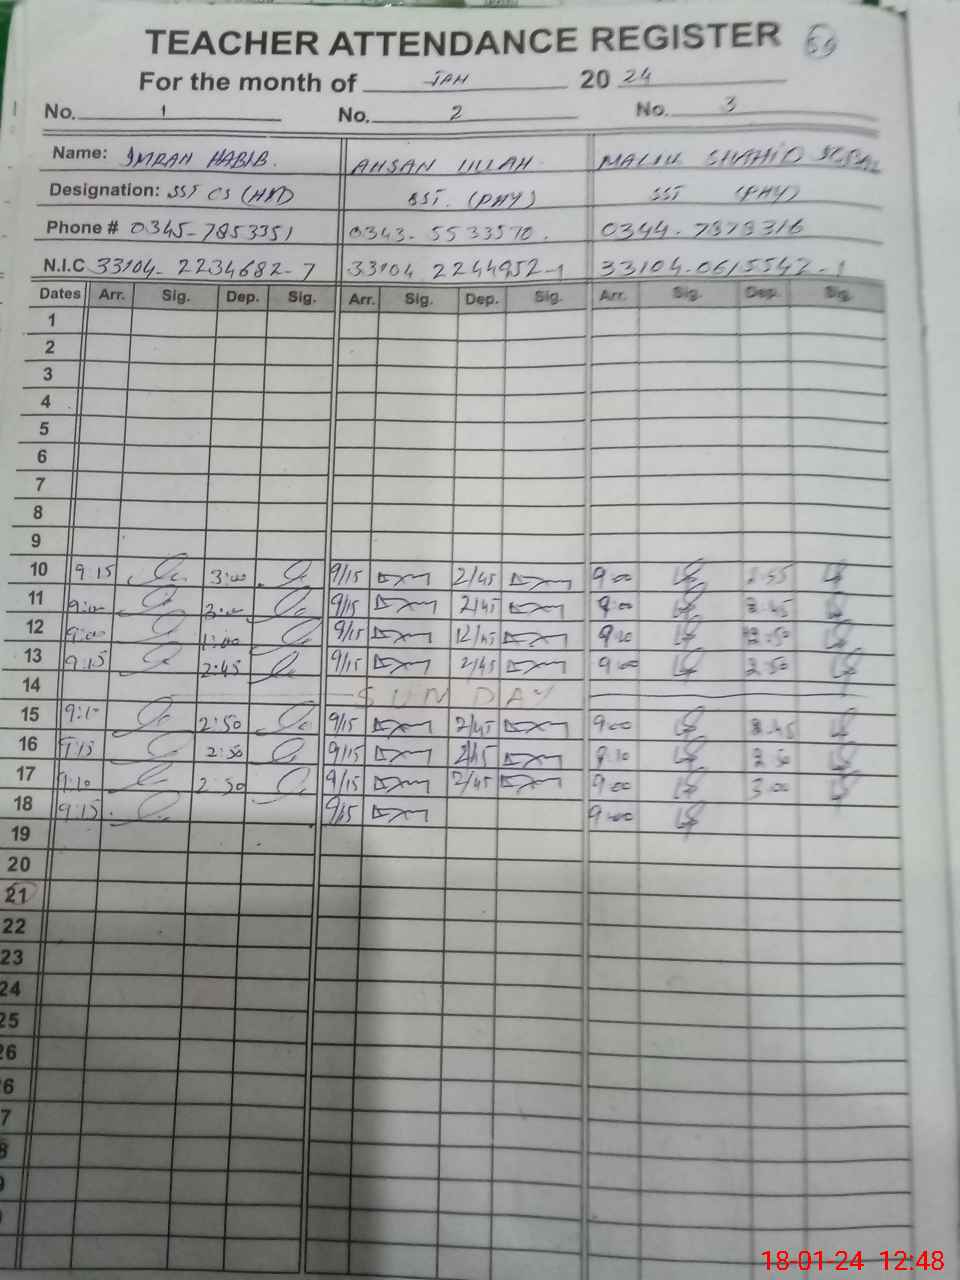 TEACHER ATTENDANCE REGISTER 59
For the month of JAN 20 24
No. 1 No. 2 No. 3
Name: IMRAN HABIB. AHSAN ULLAH. MALIK SHAHID
Designation: SST CS (HM) SST. (PHY) SST (PHY)
Phone # 0345-7853351 0343-5533570. 0344-7373316
N.I.C 33104-2234682-7 33104 2244952-1 33104-0615542-1
Dates Arr. Sig. Dep. Sig. Arr. Sig. Dep. Sig. Arr. Sig. Dep. Sig.
1
2
3
4
5
6
7
8
9
10 9:15 3:00 9/15 2/45 9:00 2:55
11 9:00 3:00 9/15 2/45 9:00 2:45
12 9:00 1:00 9/15 12/45 9:10 12:50
13 9:15 2:45 9/15 2/45 9:00 2:50
14 SUNDAY
15 9:10 2:50 9/15 2/45 9:00 2:45
16 9:15 2:50 9/15 2/45 9:10 2:50
17 9:10 2:50 9/15 2/45 9:00 3:00
18 9:15 9/15 9:00
19
20
21
22
23
24
25
26
6
7
8
18-01-24 12:48